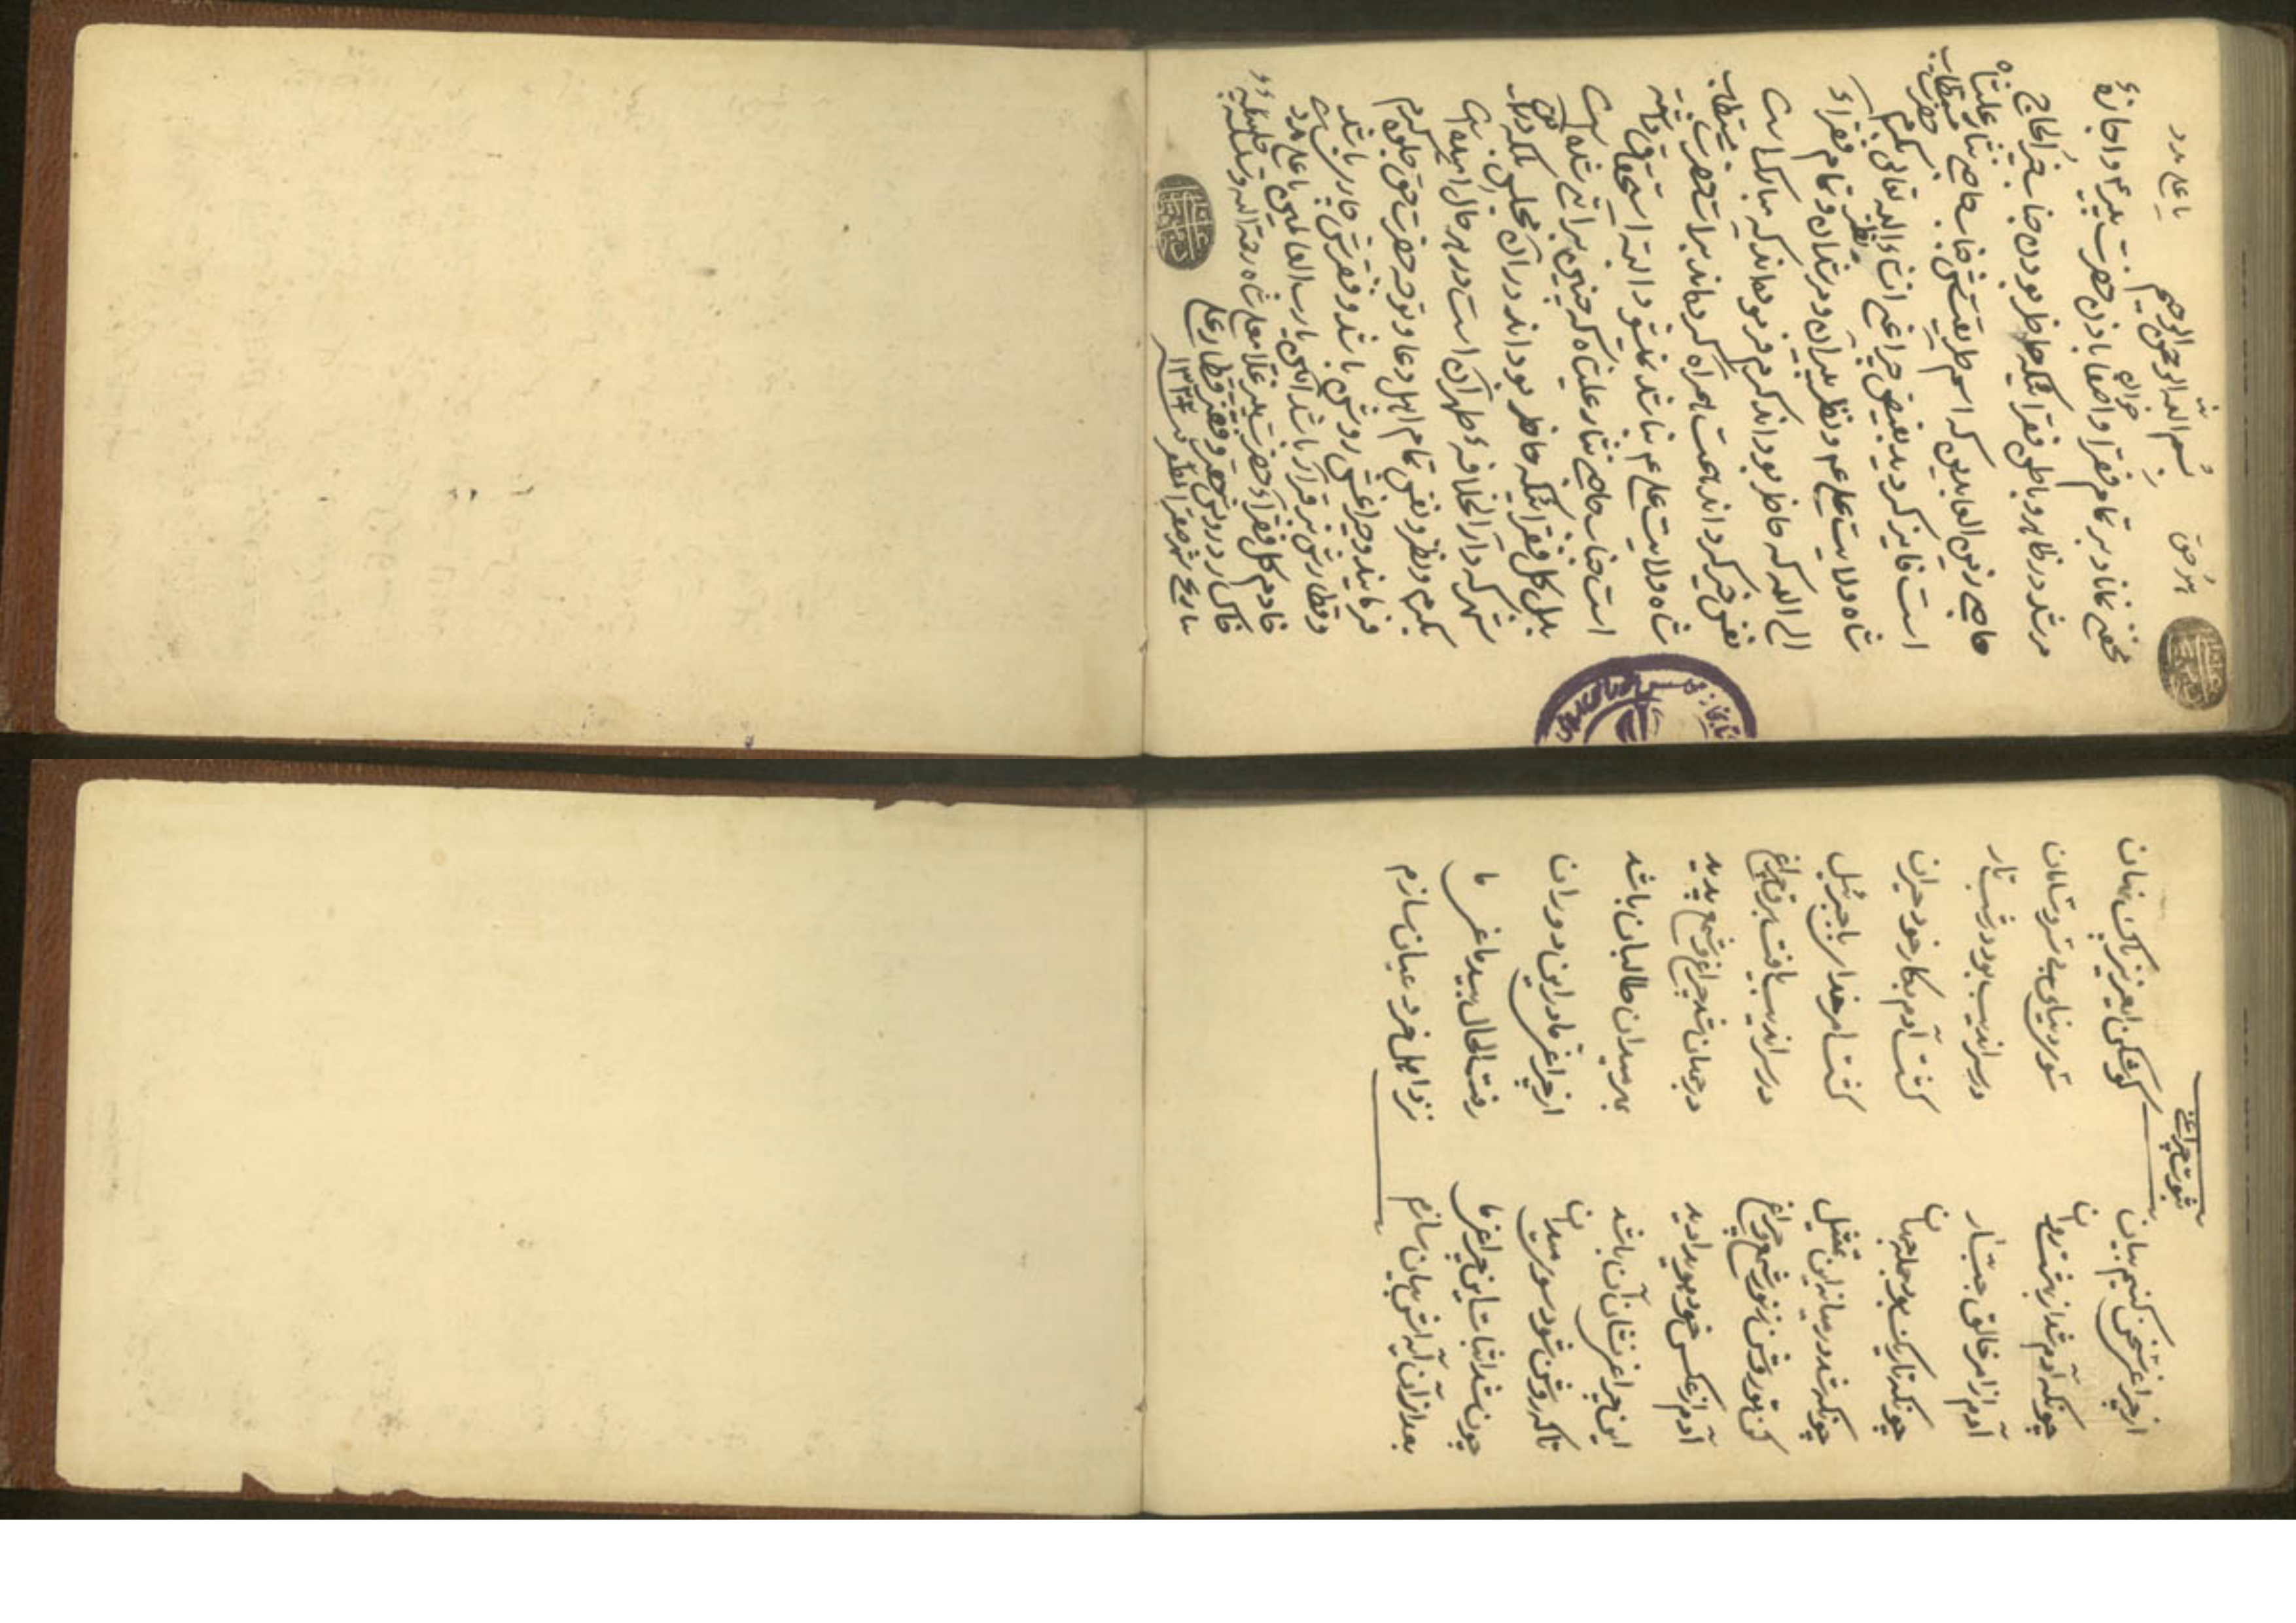 هو حق
یا علی مدد
بسم الله الرحمن الرحیم
مخفی نماناد بر تمام فقرا و اصفیا باذن حضرت پیر و اجازهٔ
مرشد در ظاهر و باطن فقرائیکه حاظر بودن جناب خیر الحاج
حاجی زین العابدین که اسم طریقتش جناب حاجی نثار علیشاه
است فایز گردید بفیض چراغی انشاءالله تعالی بکرم
شاه ولایت علی ع م و نظر پیران و مرشدان و تمام فقراء
الی الله که حاظر بوداند کرم فرموداند که مبارک است
نفس خیر کرداند همت همراه کرداند براست حضرت
شاه ولایت علی ع م نباشد نمیشود البته استحقاق داشته
است جناب حاجی نثار علیشاه که چنین براتی شده است
بلی کل فقرائیکه حاظر بوداند در آن مجلس بلکه در آن
شهر که دار الخلافهٔ طهران است در هر حال امید است
بکرم و نظر و نفس تمام اهل دعا و توجه حضرت حق جلوه کرم
فرمایند و چراغش روشن باشد و فقرش جاری باشد
و قطارش برقرار باشد آمین یا رب العالمین یا علی مدد
خادم کل فقراء حضرت پیر غلامعلی شاه رحمة الله و سلسله جلیله
خاکسار درویش جعفر و فقیر قطار علی
بتاریخ شهر صفر المظفر ۱۳۳۴
ثبوت چراغی
از چراغی سخن کنیم بیان
گوش کن ای عزیز پاک نهان
چونکه آدم شد از بهشت روان
سوی دنیای بی سر و سامان
آدم از امر خالق جبار
در سراندیب بود در شب تار
چونکه تاریک بود جمله جهان
گشت آدم بکار خود حیران
چونکه شد در میانه این تمثیل
گشت امر خدا بر یا جبرئیل
کن تو روشن ز نور شمع چراغ
در سراندیب یافت بر تو فراغ
آدم از عکس خود هویدا دید
در جهان شد چراغ و شمع پدید
این چراغی نشان آن باشد
بهر میدان طالبان باشد
تا که روشن شود سوی میدان
از چراغی ما در این دوران
چون شد اثبات این چراغی ما
رفت الحال بید ماغی ما
بعد از آن آیه اش بیان سازم
نزد اهل خرد عیان سازم